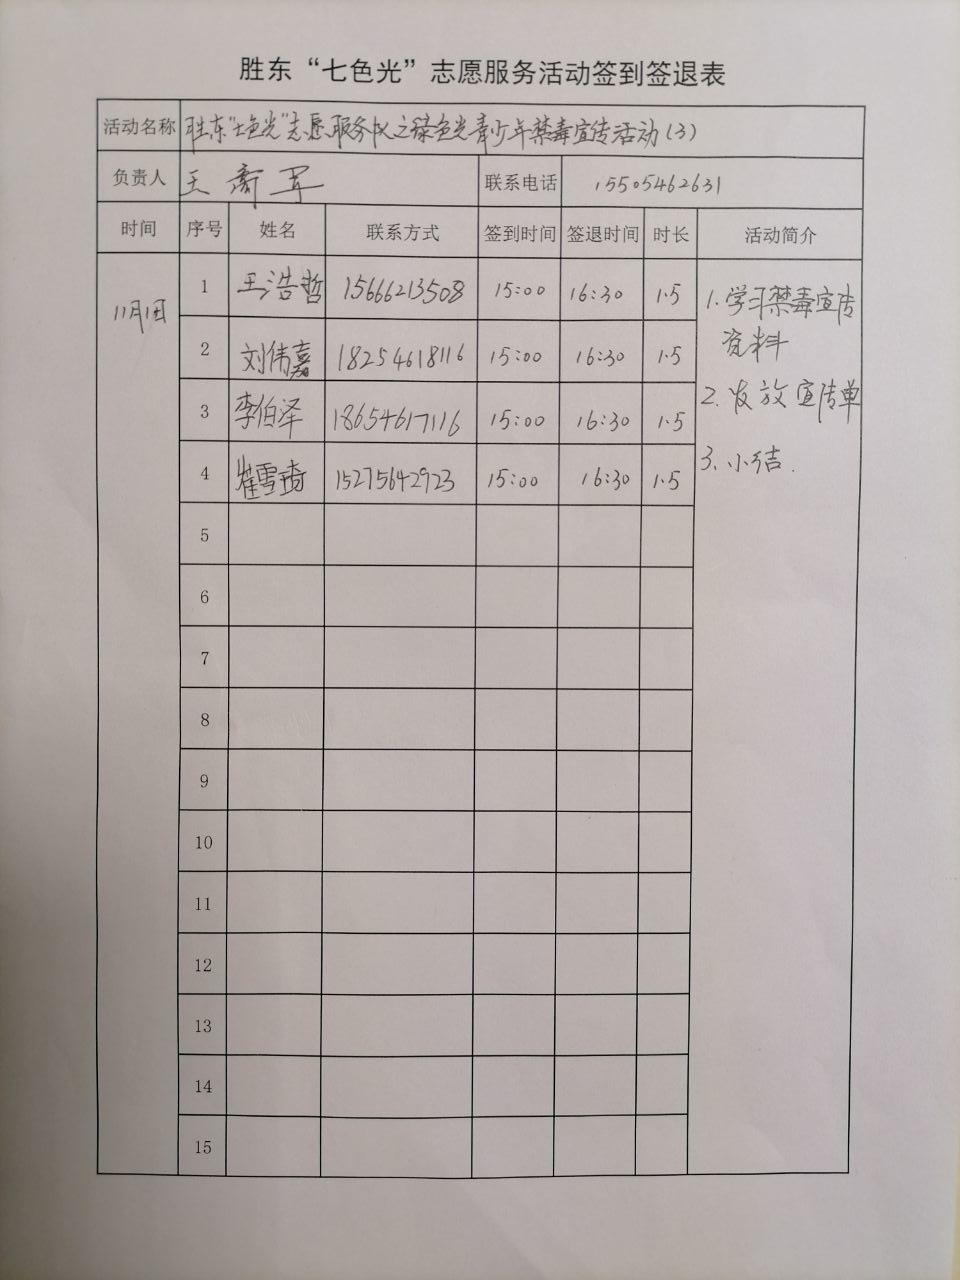 胜东“七色光”志愿服务活动签到签退表
活动名称 胜东"七色光"志愿服务队之绿色光青少年禁毒宣传活动(3)
负责人 王 新 军 联系电话 15505462631
时间 序号 姓名 联系方式 签到时间 签退时间 时长 活动简介
11月1日
1 王浩哲 15666213508 15:00 16:30 1.5
2 刘伟嘉 18254618116 15:00 16:30 1.5
3 李伯泽 18654617116 15:00 16:30 1.5
4 崔雪琦 15275642923 15:00 16:30 1.5
1.学习禁毒宣传
资料
2.发放宣传单
3.小结.
5
6
7
8
9
10
11
12
13
14
15